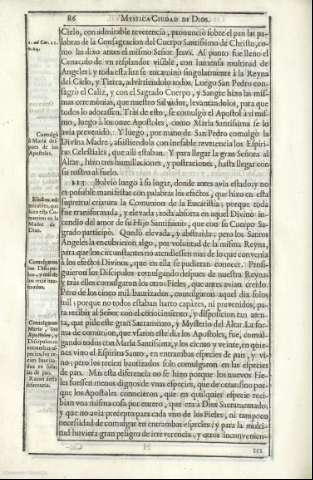 86 MYSTICA CIUDAD DE DIOS.
Cielo, con admirable reverencia, pronunciò sobre el pan las palabras
de la Consagracion del Cuerpo Santissimo de Christo, como
las dixo antes el mismo Señor Jesus. Al punto fue lleno el
Cenaculo de un resplandor visible, con inmensa multitud de
Angeles; y toda esta luz se encaminò singularmente à la Reyna
del Cielo, y Tierra, advirtiendolo todos. Luego San Pedro consagrò
el Caliz, y con el Sagrado Cuerpo, y Sangre hizo las mismas
ceremonias, que nuestro Salvador, levantandolos, para que
todos lo adorassen. Tràs de esto, se comulgò el Apostol à sì mismo,
luego à los onze Apostoles, como MARIA Santissima se lo
avia prevenido. Y luego, por mano de San Pedro comulgò la
Divina Madre, assistiendola con inefable reverencia los Espiritus
Celestiales, que alli estaban. Y para llegar la gran Señora al
Altar, hizo tres humillaciones, y postraciones, hasta llegar con
su rostro al suelo.
113. Bolviò luego à su lugar, donde antes avia estado; y no
es possible manifestar con palabras los efectos, que hizo en esta
suprema criatura la Comunion de la Eucaristia; porque toda
fue transformada, y elevada, toda absorta en aquel Divino incendio
del amor de su Hijo Santissimo, que con su Cuerpo Sagrado
participò. Quedò elevada, y abstraida; pero los Santos
Angeles la encubrieron algo, por voluntad de la misma Reyna,
para que los circunstantes no atendiessen mas de lo que convenia
à los efectos Divinos, que en ella se pudieran conocer. Prosiguieron
los Discipulos comulgando despues de nuestra Reyna
y tràs ellos comulgaron los otros Fieles, que antes avian creido.
Pero de los cinco mil bautizados, comulgaron aquel dia solos
mil; porque no todos estaban harto capàces, ni prevenidos, para
recibir al Señor con el conocimiento, y disposicion tan atenta,
que pide este gran Sacramento, y Mysterio del Altar. La forma
de comunion, que usaron este dia los Apostoles, fue, comulgando
todos con MARIA Santissima, y los ciento y veinte, en quienes
vino el Espiritu Santo, en entrambas especies de pan, y vino;
pero los recien bautizados solo comulgaron en las especies
de pan. Mas esta diferencia no se hizo porque los nuevos Fieles
fuessen menos dignos de unas especies, que de otras; sino porque
los Apostoles conocieron, que en qualquier especie recibian
una misma cosa por entero, que era à Dios Sacramentado,
y que no avia precepto para cada uno de los Fieles, ni tampoco
necessidad de comulgar en entrambas especies; y para la multitud
huviera gran peligro de irreverencia, y otros inconvenien-
Comulgò
à MARIA despues
de los
Apostoles.
Comulgaron
Maria, los
Apostoles, y
Discipulos en
entrambas especies